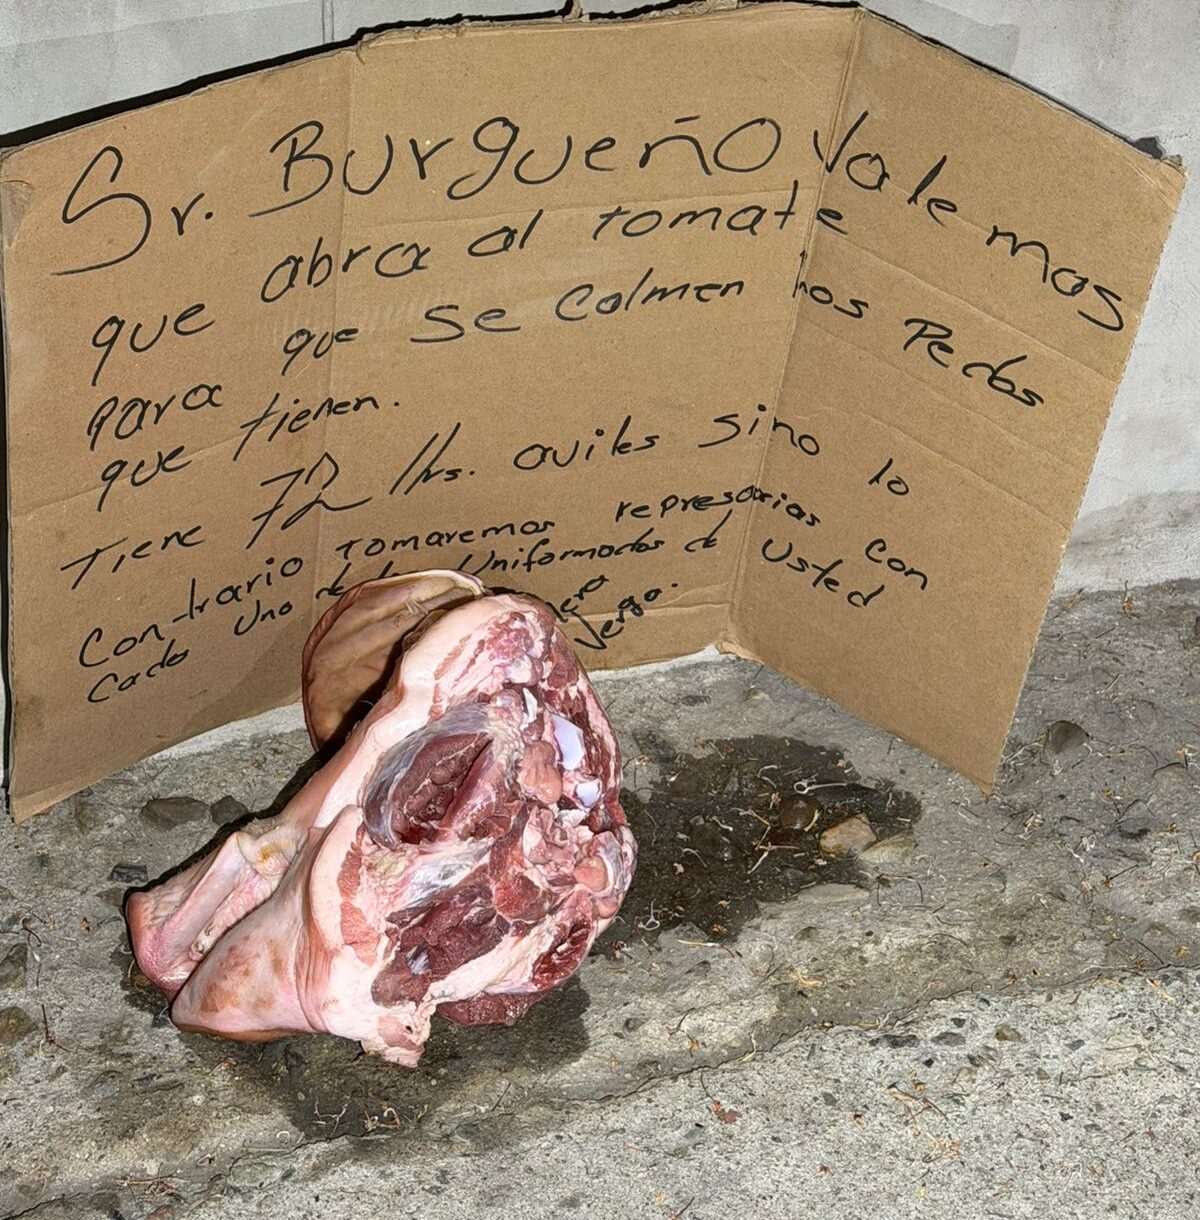 Sr. Burgueño, Vale mas
que abra al tomate
para que se colmen los Pedos
que tienen.
Tiene 72 Hrs. aviles sino lo
Contrario tomaremos represarias con
Cada Uno de los Uniformados de Usted
verga.